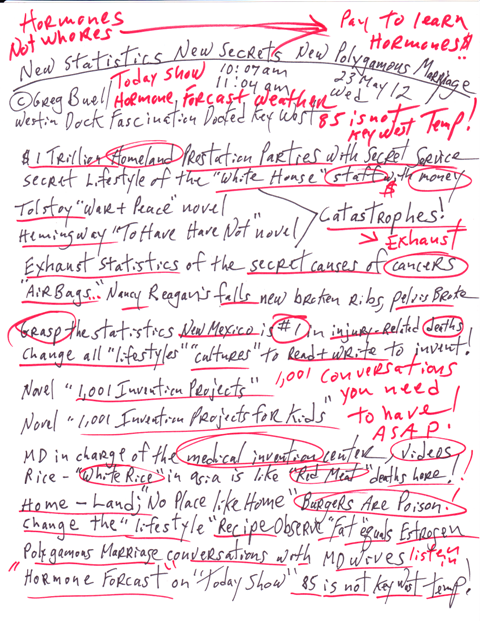 Hormones
Not Whores
Pay to learn
Hormones $!
New Statistics New Secrets New Polygamous Marriage
Today Show 10:07am 23 May 12
© Greg Buell Hormone Forcast Weather 11:04 am Wed
Westin Dock Fascination Docked Key West 85 is not
Key West Temp!
$1 Trillion Homeland Prostation Parties with Secret Service
Secret Lifestyle of the "White House" staff with money
$
Tolstoy "War + Peace" novel
Catastrophes!
Hemingway "To Have Have Not" novel
> Exhaust
Exhaust Statistics of the secret causes of cancers
"Air Bags.." Nancy Reagan's falls new broken ribs, pelvis Broke
Grasp the statistics New Mexico is #1 in injury-relitd deaths
change all "lifestyles" "cultures" to Read + write to invent!
Novel "1,001 Invention Projects"
1,001 Conversations
you need
Novel "1,001 Invention Projects for Kids"
to have
ASAP!
MD in charge of the medical invention center, videos
Rice - "White Rice" in asia is like "Red Meat" deaths here!!
Home - Land; "No Place like Home" Burgers Are Poison!
change the "lifestyle" Recipe Observe "Fat" equals Estrogen
Polygamous Marriage conversations with MD wives listen in
"Hormone Forcast" on "Today Show" 85 is not Key West temp!